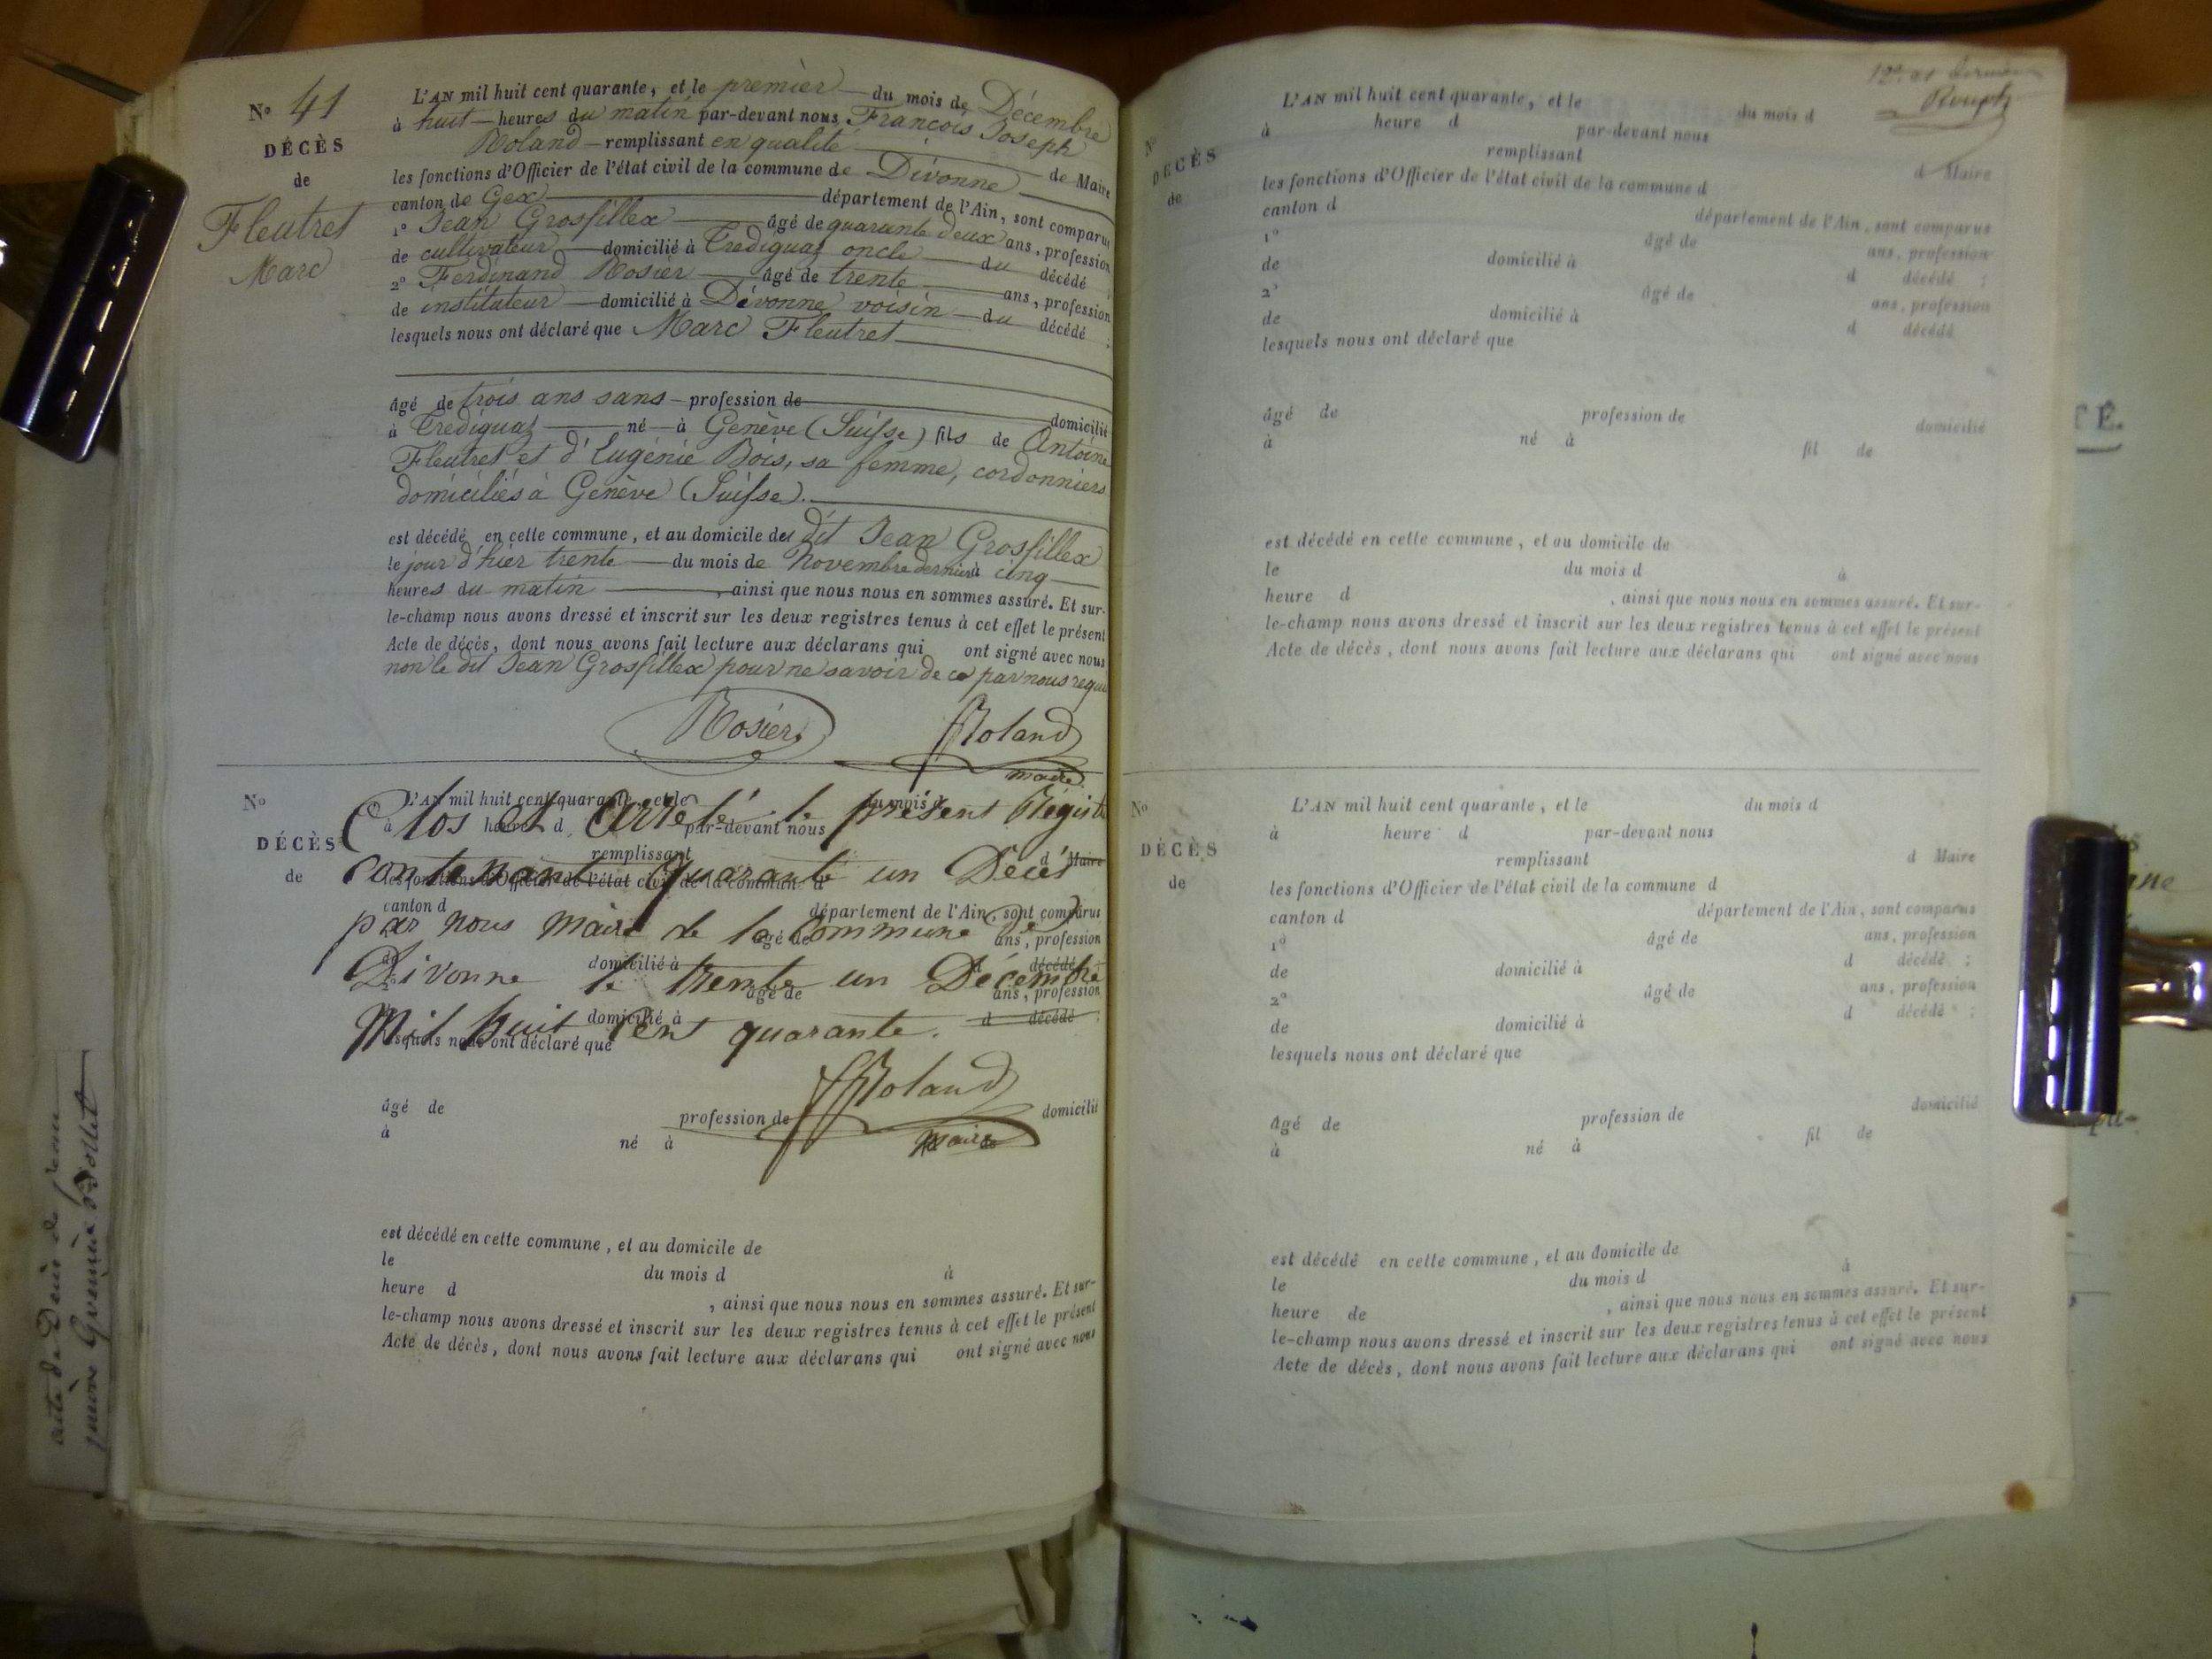 N.o 41
DÉCÈS
de
Fleutret
Marc
L'AN mil huit cent quarante, et le premier du mois de Décembre
à huit heures du matin par-devant nous François Joseph
Roland remplissant en qualité de Maire
les fonctions d'Officier de l'état civil de la commune de Divonne
canton de Gex département de l'Ain, sont comparus
1º Jean Grosfillex âgé de quarante deux ans, profession
de cultivateur domicilié à Trediguaz oncle du décédé ;
2º Ferdinand Rosier âgé de trente ans, profession
de instituteur domicilié à Divonne voisin du décédé ;
lesquels nous ont déclaré que Marc Fleutret
âgé de trois ans sans profession de domicilié
à Trediguaz né à Genève (Suisse) fils de Antoine
Fleutret et d'Eugénie Bois, sa femme, cordonniers
domiciliés à Genève (Suisse).
est décédé en cette commune, et au domicile du dit Jean Grosfillex
le jour d'hier trente du mois de Novembre dernier à cinq
heures du matin , ainsi que nous nous en sommes assuré. Et sur-
le-champ nous avons dressé et inscrit sur les deux registres tenus à cet effet le présent
Acte de décès, dont nous avons fait lecture aux déclarans qui ont signé avec nous
non le dit Jean Grosfillex pour ne savoir de ce par nous requis
Rosier
Roland
maire
No
DÉCÈS
de
L'AN mil huit cent quarante, et le du mois d
Clos et Arrêté le présent Régist
à heure d par-devant nous
remplissant d Maire
contenant quarante un Décès
les fonctions d'Officier de l'état civil de la commune d
canton d département de l'Ain, sont comparus
par nous Maire de la Commune de
âgé de ans, profession
de domicilié à d décédé ;
Divonne le trente un Décembre
âgé de ans, profession
domicilié à d décédé ;
Mil huit Cent quarante.
lesquels nous ont déclaré que
Roland
âgé de profession de domicilié
à né à
Maire
est décédé en cette commune, et au domicile de
le du mois d à
heure d , ainsi que nous nous en sommes assuré. Et sur-
le-champ nous avons dressé et inscrit sur les deux registres tenus à cet effet le présent
Acte de décès, dont nous avons fait lecture aux déclarans qui ont signé avec nous
No
DÉCÈS
de
L'AN mil huit cent quarante, et le du mois d
à heure d par-devant nous
remplissant d Maire
les fonctions d'Officier de l'état civil de la commune d
canton d département de l'Ain, sont comparus
1º âgé de ans, profession
de domicilié à d décédé ;
2º âgé de ans, profession
de domicilié à d décédé
lesquels nous ont déclaré que
âgé de profession de domicilié
à né à fil de
est décédé en cette commune, et au domicile de
le du mois d à
heure d , ainsi que nous nous en sommes assuré. Et sur-
le-champ nous avons dressé et inscrit sur les deux registres tenus à cet effet le présent
Acte de décès, dont nous avons fait lecture aux déclarans qui ont signé avec nous
No
DÉCÈS
de
L'AN mil huit cent quarante, et le du mois d
à heure d par-devant nous
remplissant d Maire
les fonctions d'Officier de l'état civil de la commune d
canton d département de l'Ain, sont comparus
1º âgé de ans, profession
de domicilié à d décédé ;
2º âgé de ans, profession
de domicilié à d décédé ;
lesquels nous ont déclaré que
âgé de profession de domicilié
à né à fil de
est décédé en cette commune, et au domicile de
le du mois d à
heure de , ainsi que nous nous en sommes assuré. Et sur-
le-champ nous avons dressé et inscrit sur les deux registres tenus à cet effet le présent
Acte de décès, dont nous avons fait lecture aux déclarans qui ont signé avec nous